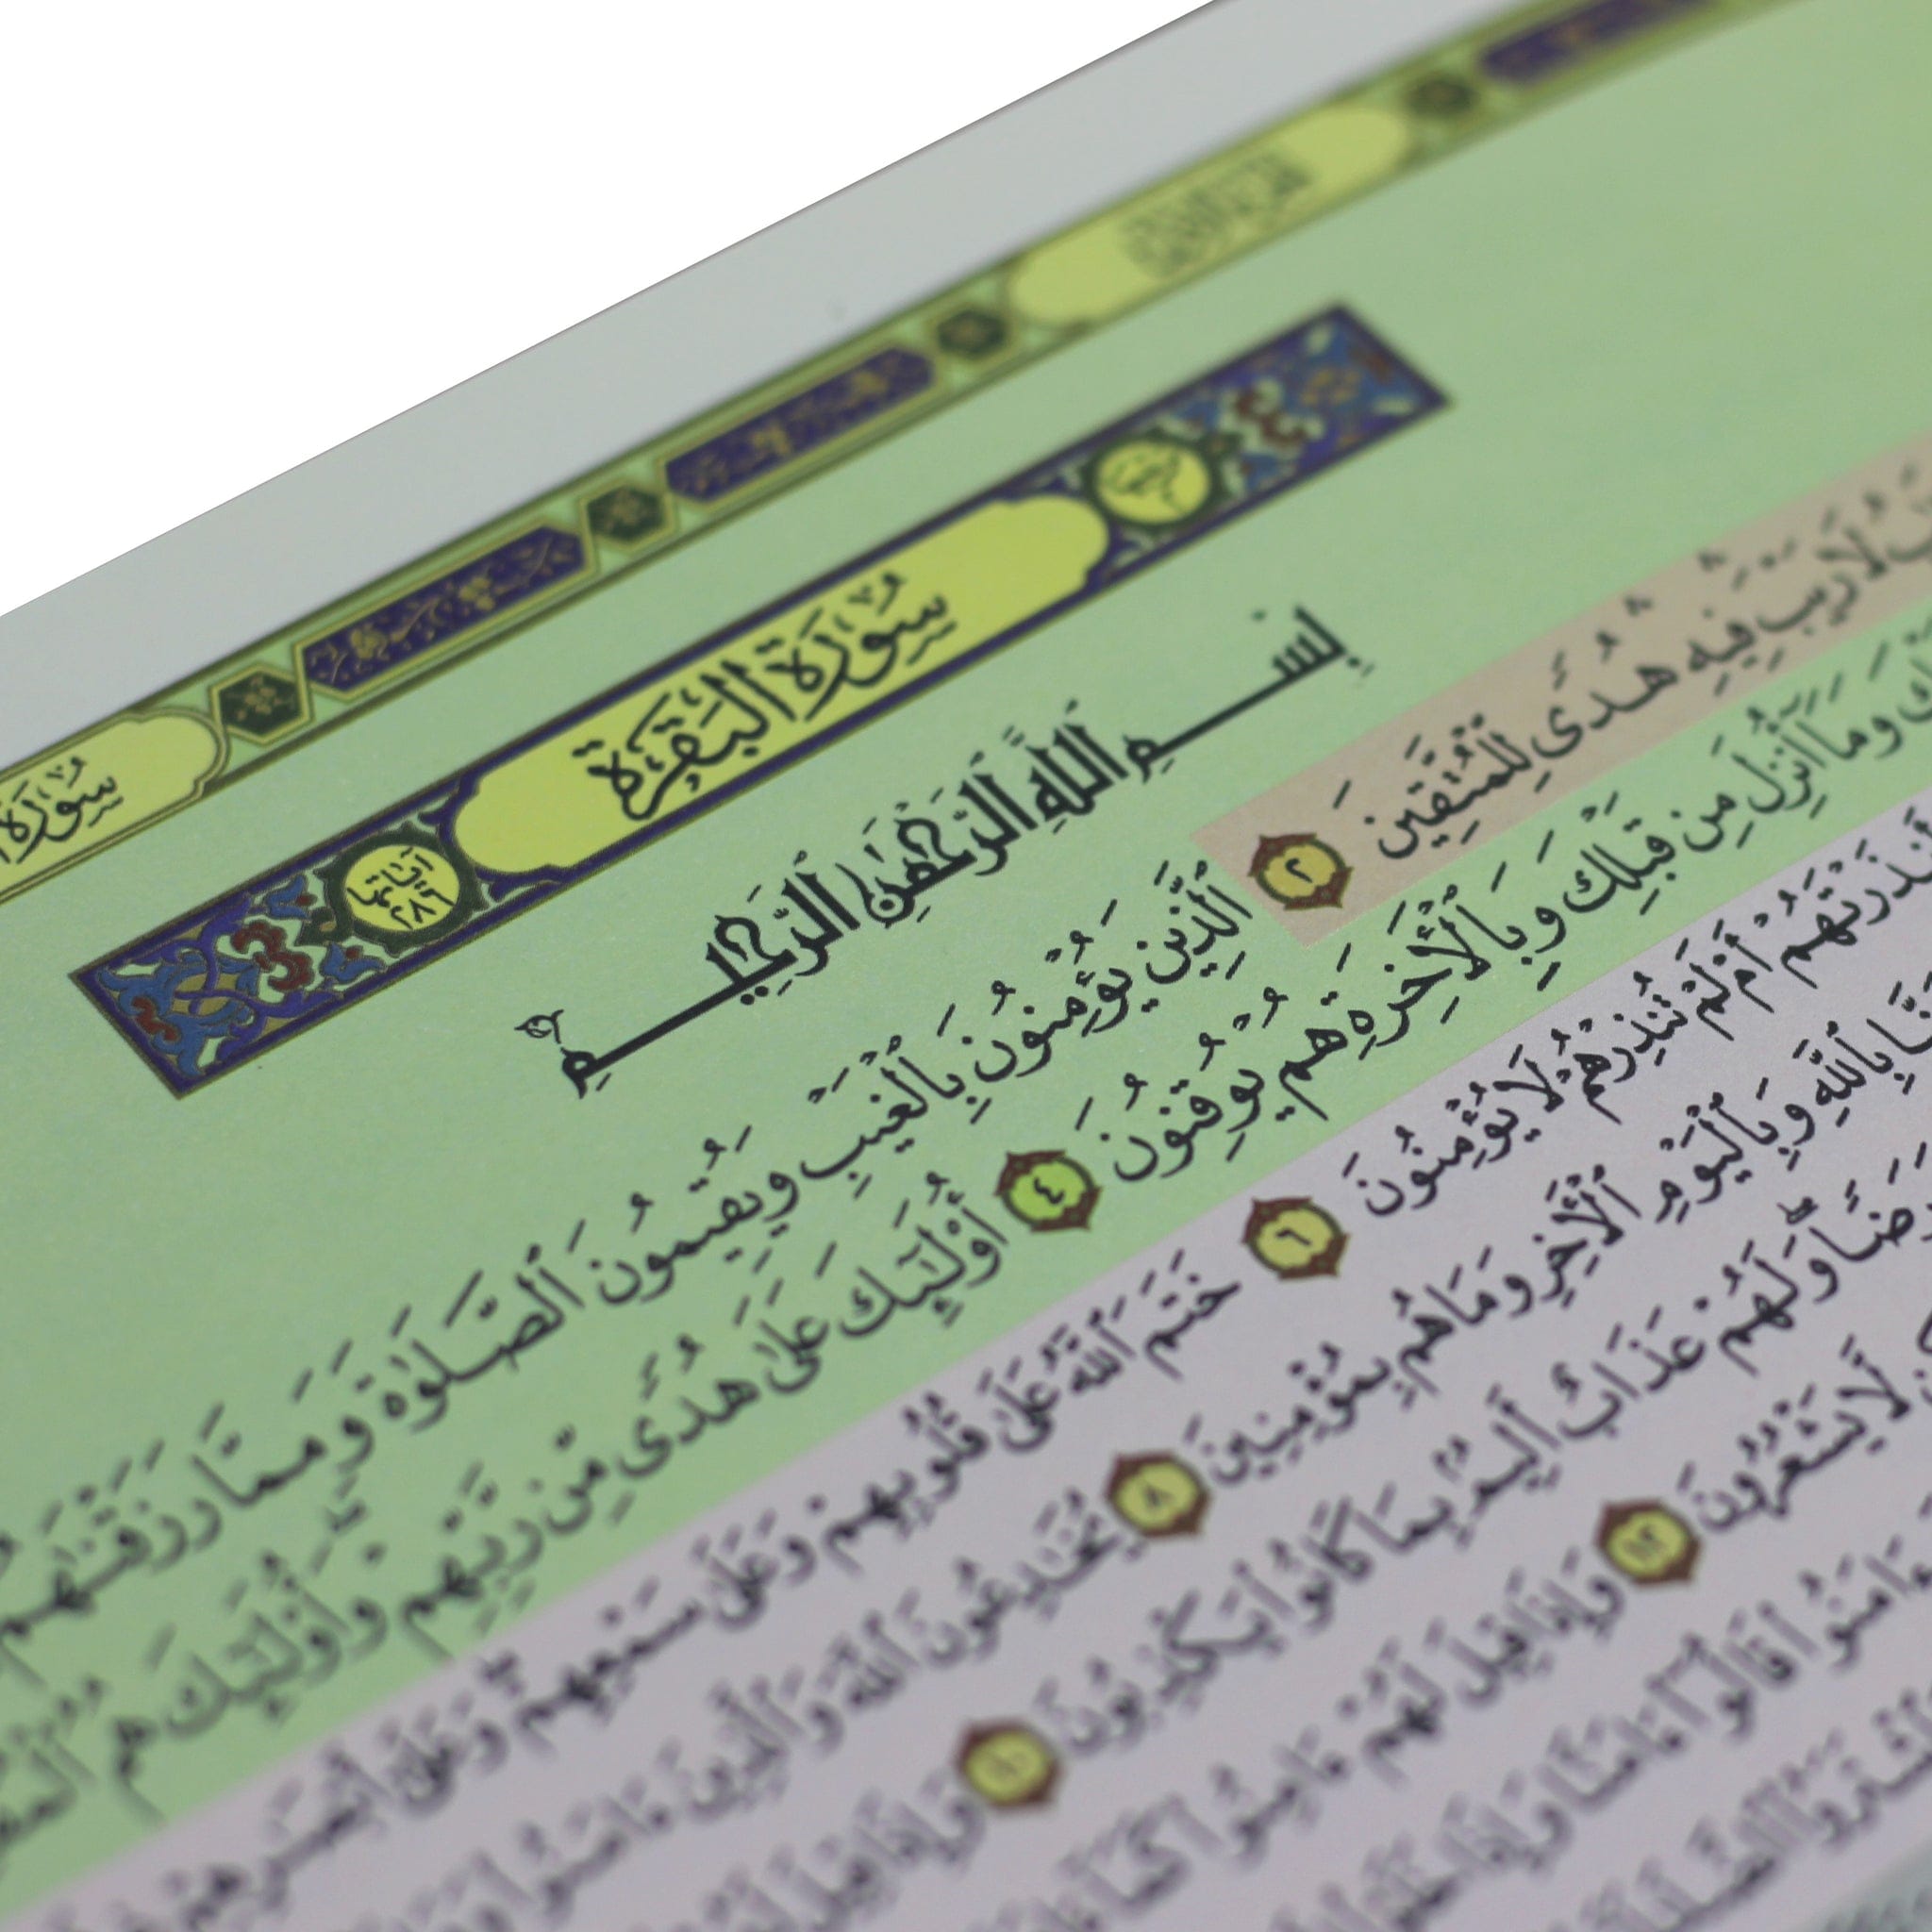 سُورَةُ
سُورَةُ البَقَرَةِ
آياتها ٢٨٦
بِسْمِ ٱللَّهِ ٱلرَّحْمَٰنِ ٱلرَّحِيمِ
لَا رَيْبَ ۛ فِيهِ ۛ هُدًى لِّلْمُتَّقِينَ ٢ ٱلَّذِينَ يُؤْمِنُونَ بِٱلْغَيْبِ وَيُقِيمُونَ ٱلصَّلَوٰةَ وَمِمَّا رَزَقْنَٰهُمْ
وَمَآ أُنزِلَ مِن قَبْلِكَ وَبِٱلْأَخِرَةِ هُمْ يُوقِنُونَ ٤ أُو۟لَٰٓئِكَ عَلَىٰ هُدًى مِّن رَّبِّهِمْ ۖ وَأُو۟لَٰٓئِكَ هُمُ
أَمْ لَمْ تُنذِرْهُمْ لَا يُؤْمِنُونَ ٦ خَتَمَ ٱللَّهُ عَلَىٰ قُلُوبِهِمْ وَعَلَىٰ سَمْعِهِمْ ۖ وَعَلَىٰٓ أَبْصَٰرِهِمْ
بِٱللَّهِ وَبِٱلْيَوْمِ ٱلْأَخِرِ وَمَا هُم بِمُؤْمِنِينَ ٨ يُخَٰدِعُونَ ٱللَّهَ وَٱلَّذِينَ ءَامَنُوا۟
وَلَهُمْ عَذَابٌ أَلِيمٌۢ بِمَا كَانُوا۟ يَكْذِبُونَ ١٠ وَإِذَا قِيلَ
لَّا يَشْعُرُونَ ١٢ وَإِذَا قِيلَ لَهُمْ ءَامِنُوا۟ كَمَآ
ءَامَنُوا۟ قَالُوٓا۟ ءَامَنَّا وَإِذَا